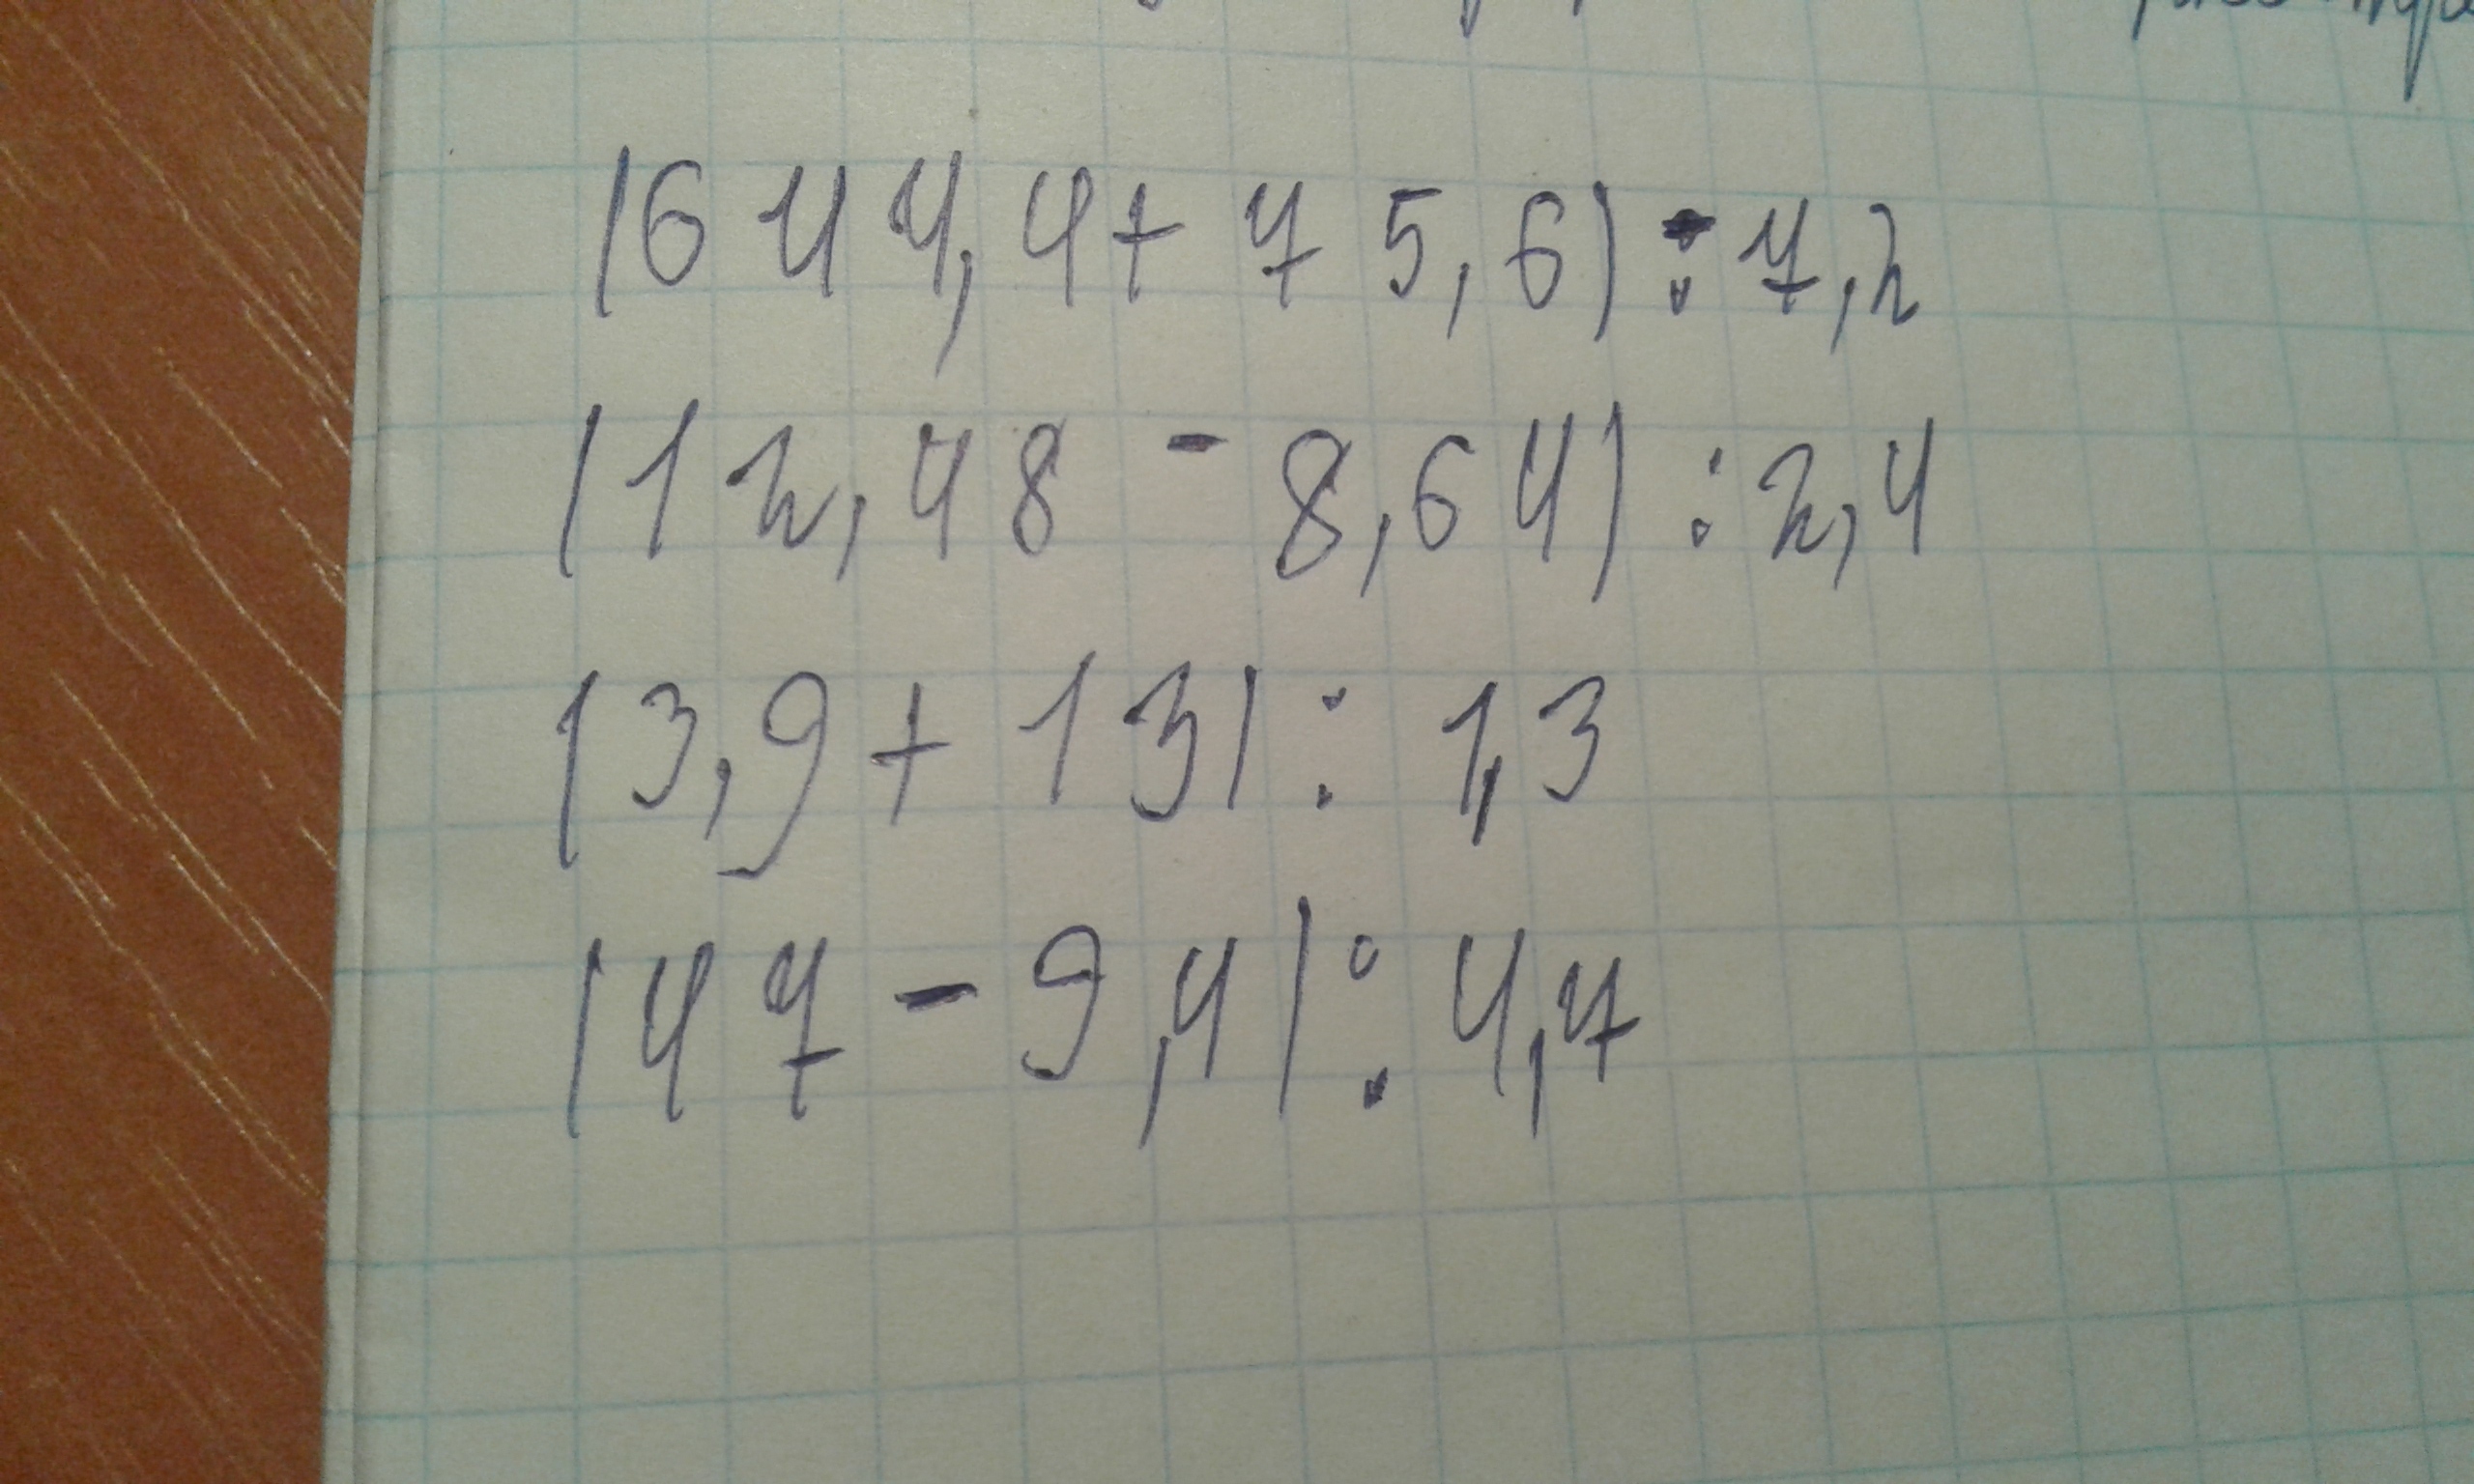 (644,4+75,6):7,2
(12,48-8,64):2,4
(3,9+13):1,3
(47-9,4):4,7